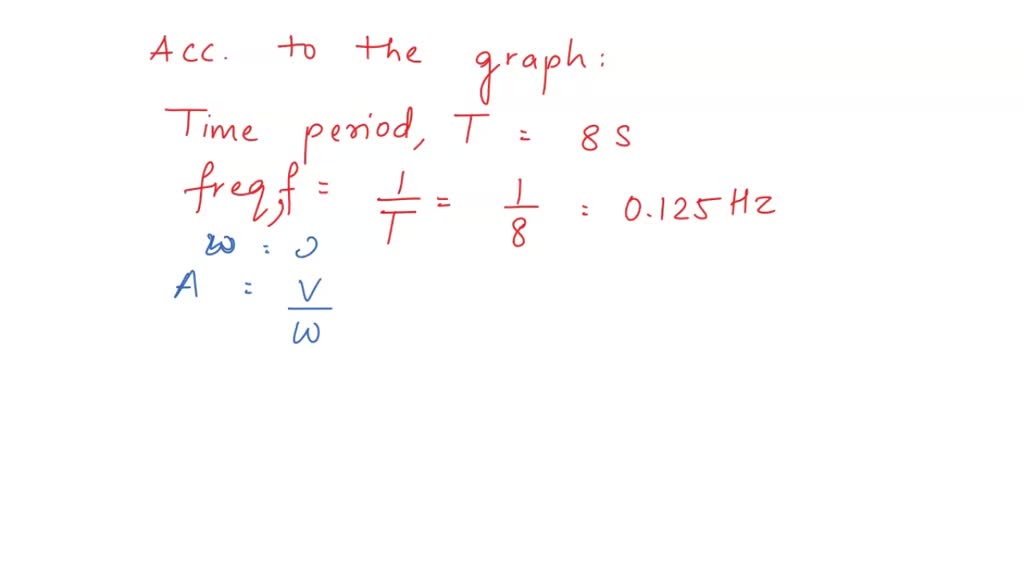 Acc. to the graph:
Time period, T = 8 s
freq, f = 1/T = 1/8 = 0.125 Hz
ω =
A = V/ω